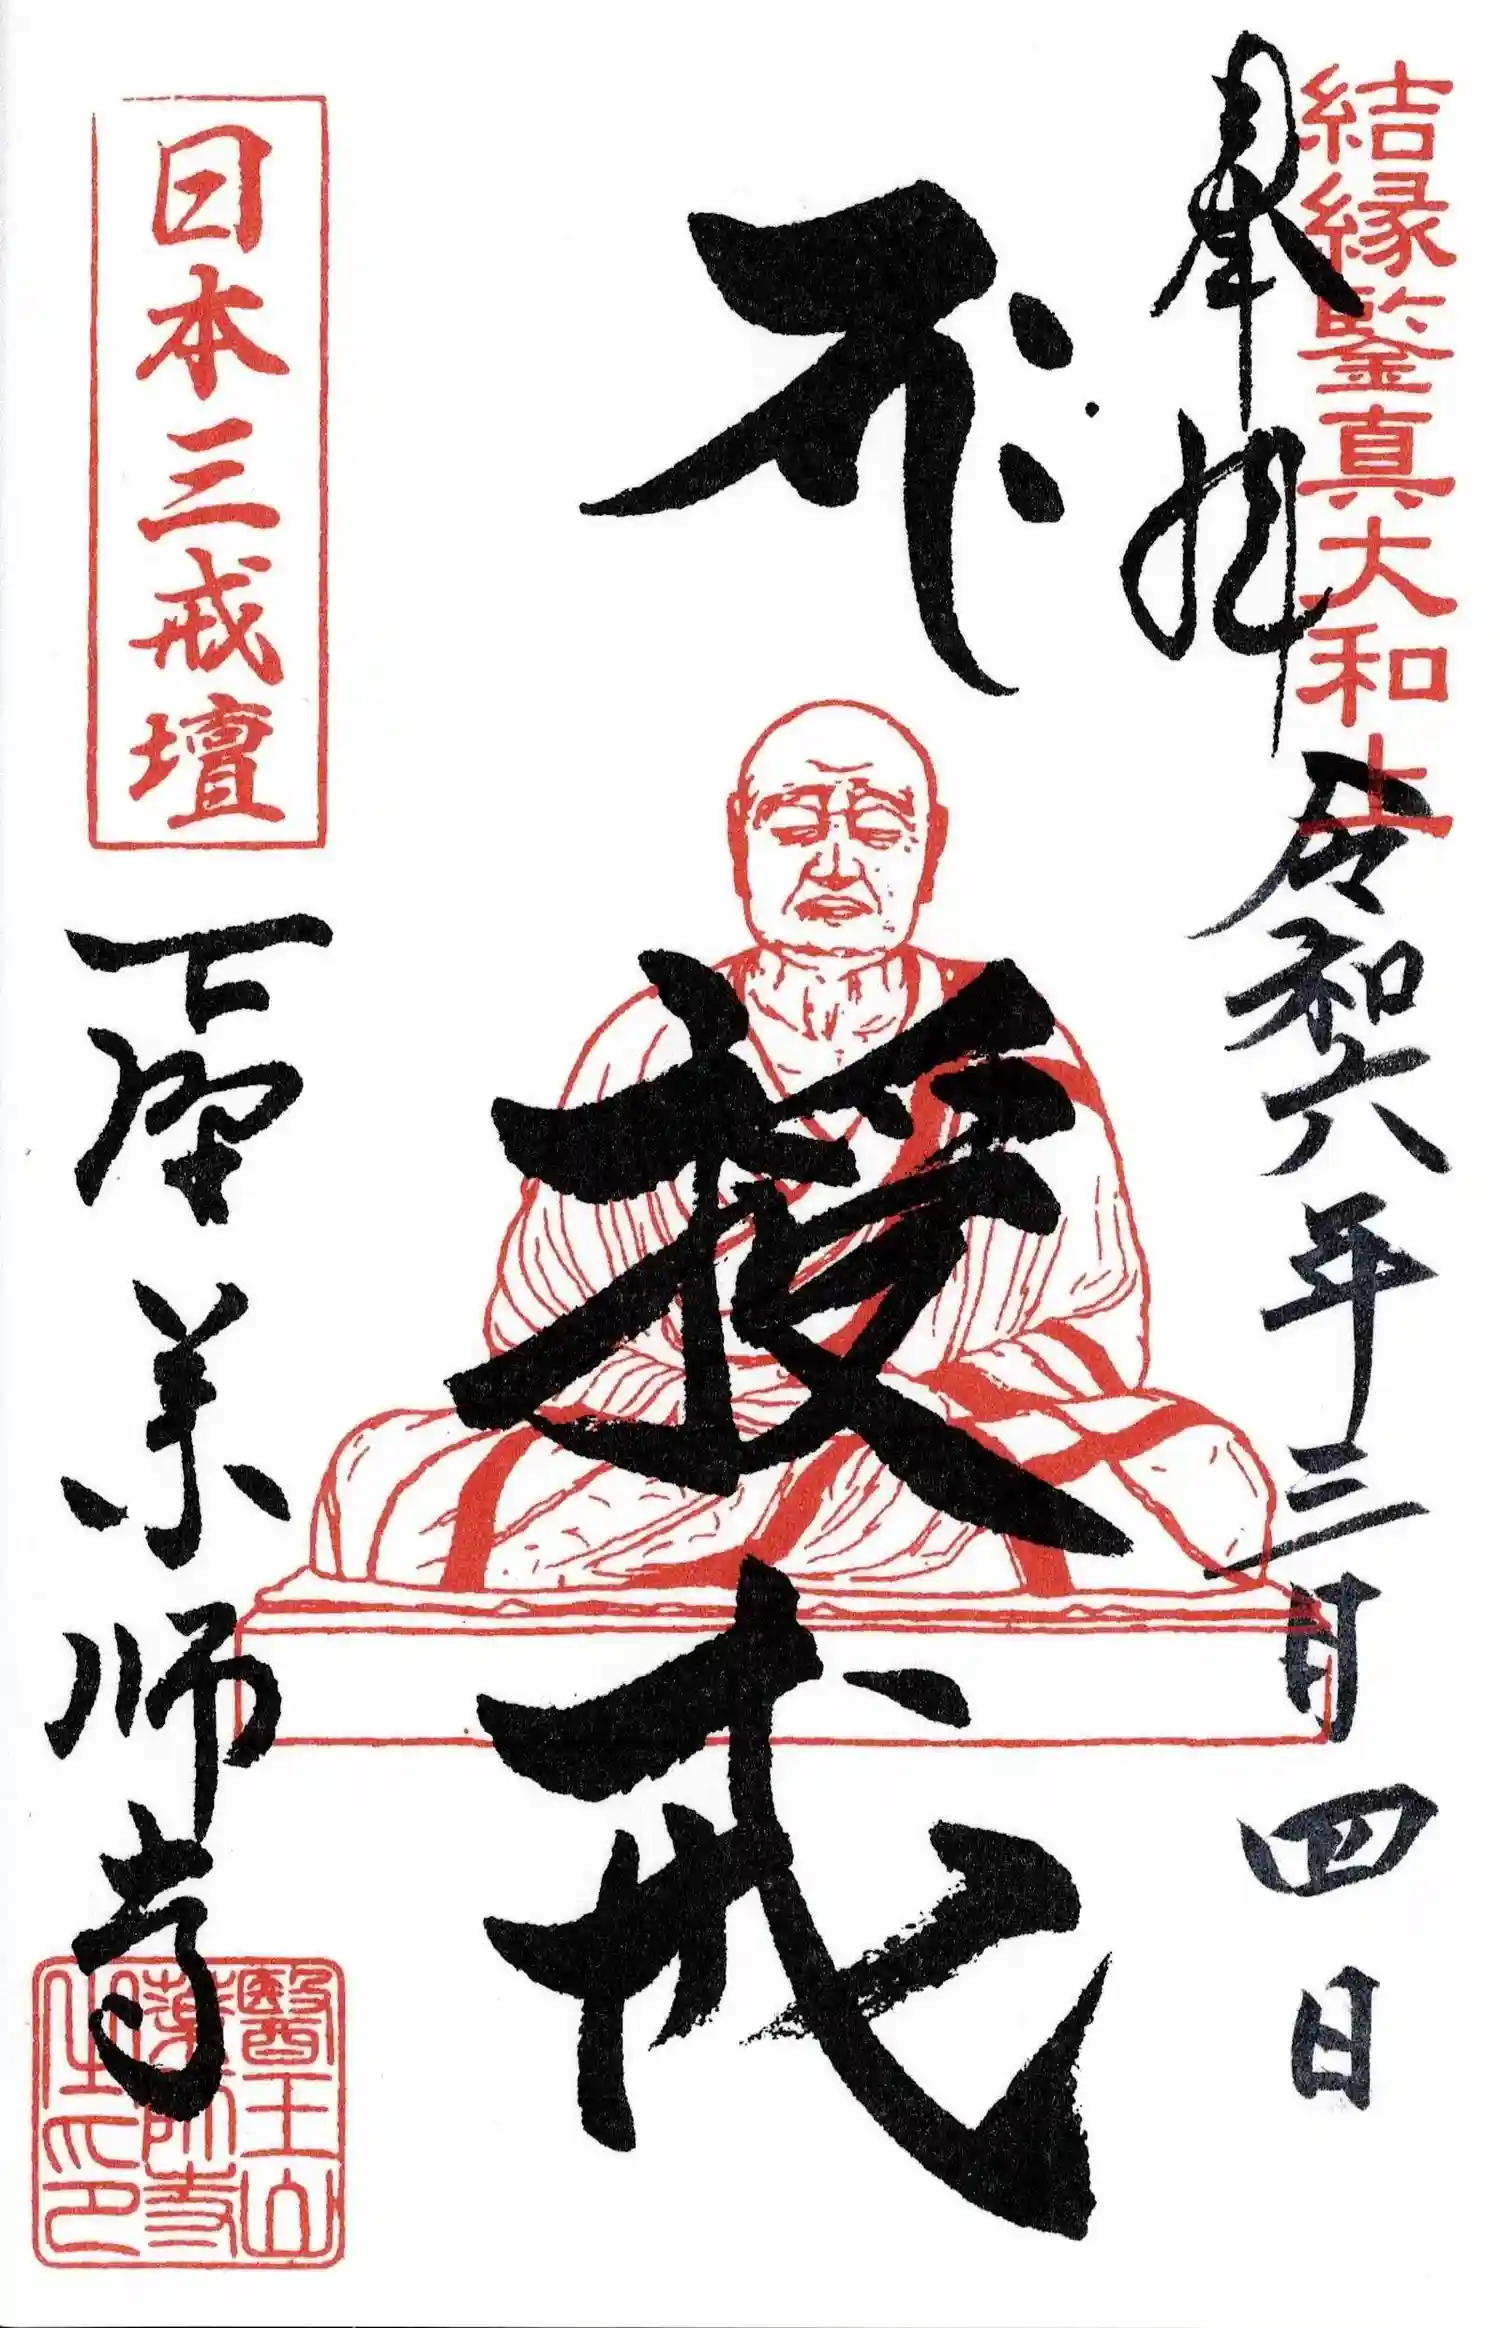 結縁鑒真大和上
奉拝
令和六年三月四日
授戒
日本三戒壇
下野薬師寺
醫王山
藥師寺
住印